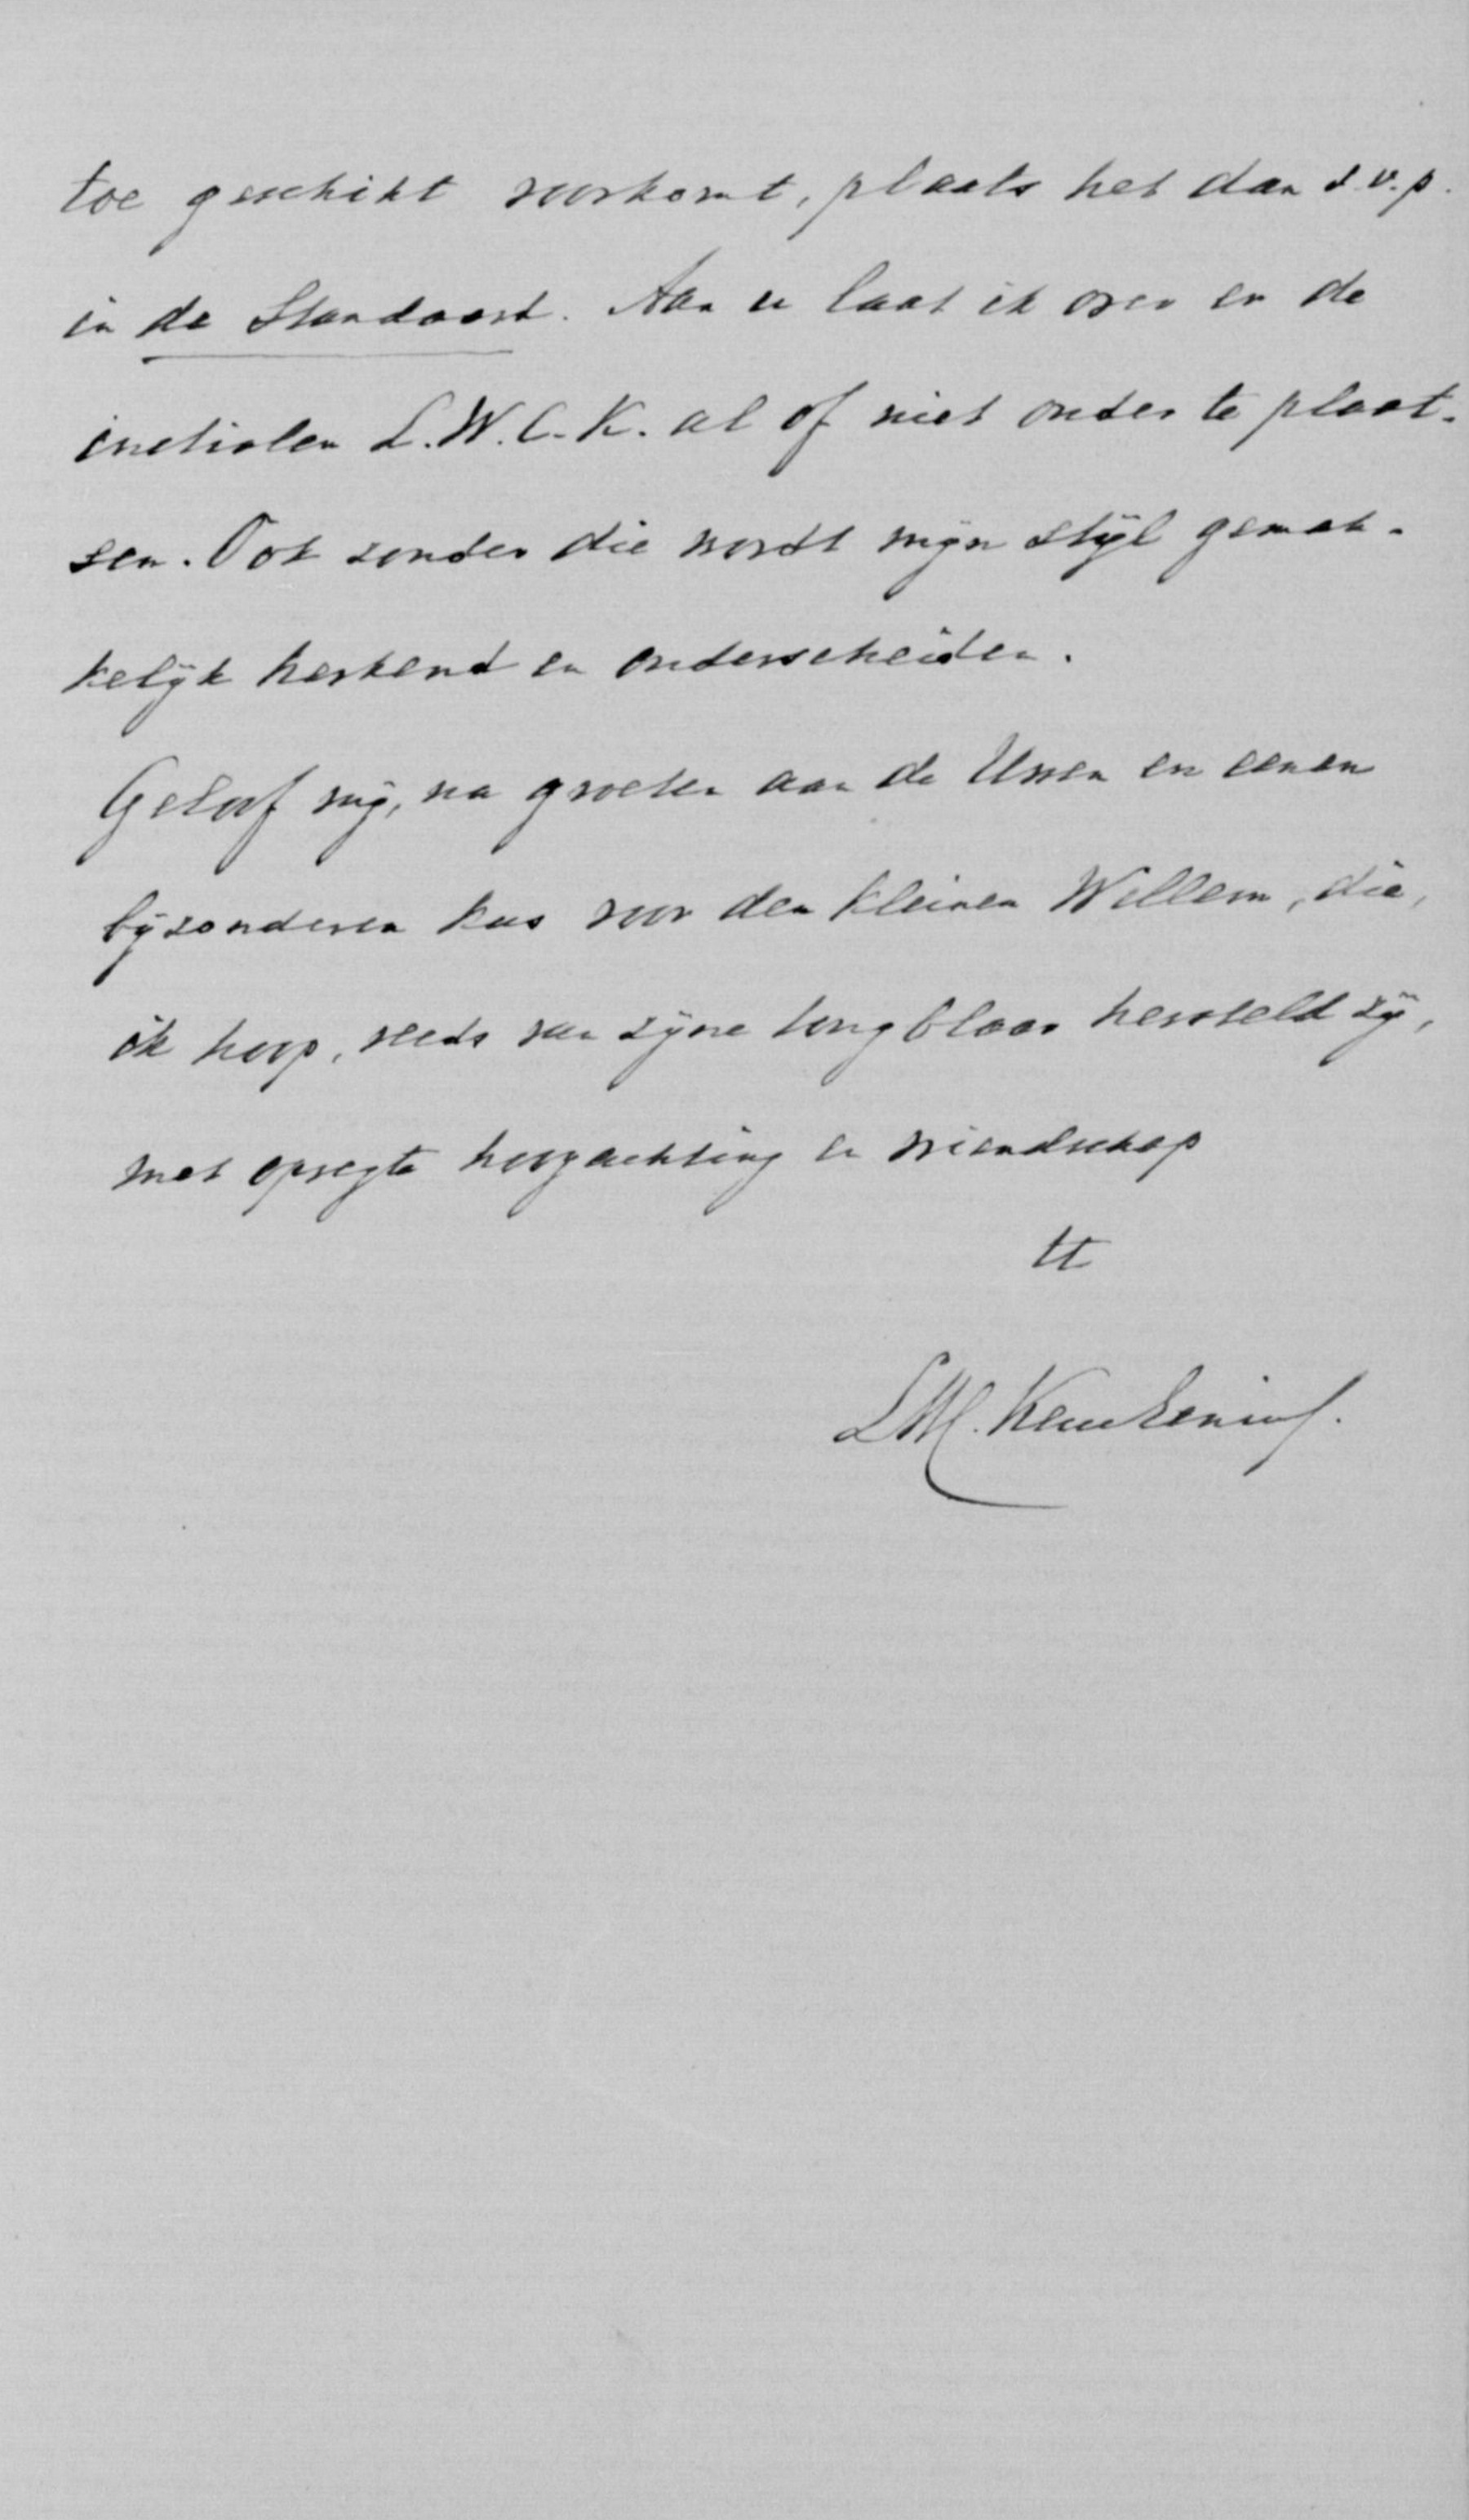 toe geschikt voorkomt, plaats het dan s.v.p.
in de Standaard. Aan u laat ik over er de
initialen L.W.C.K. al of niet onder te plaat-
sen. Ook zonder die wordt mijn stijl gemak-
kelijk herkend en onderscheiden.
Geloof mij, na groeten aan de Uwen en eenen
bijzonderen kus voor den kleinen Willem, die,
ik hoop, reeds van zijne longblaas hersteld zij,
met opregte hoogachting en vriendschap
tt
LWC. Keuchenius.